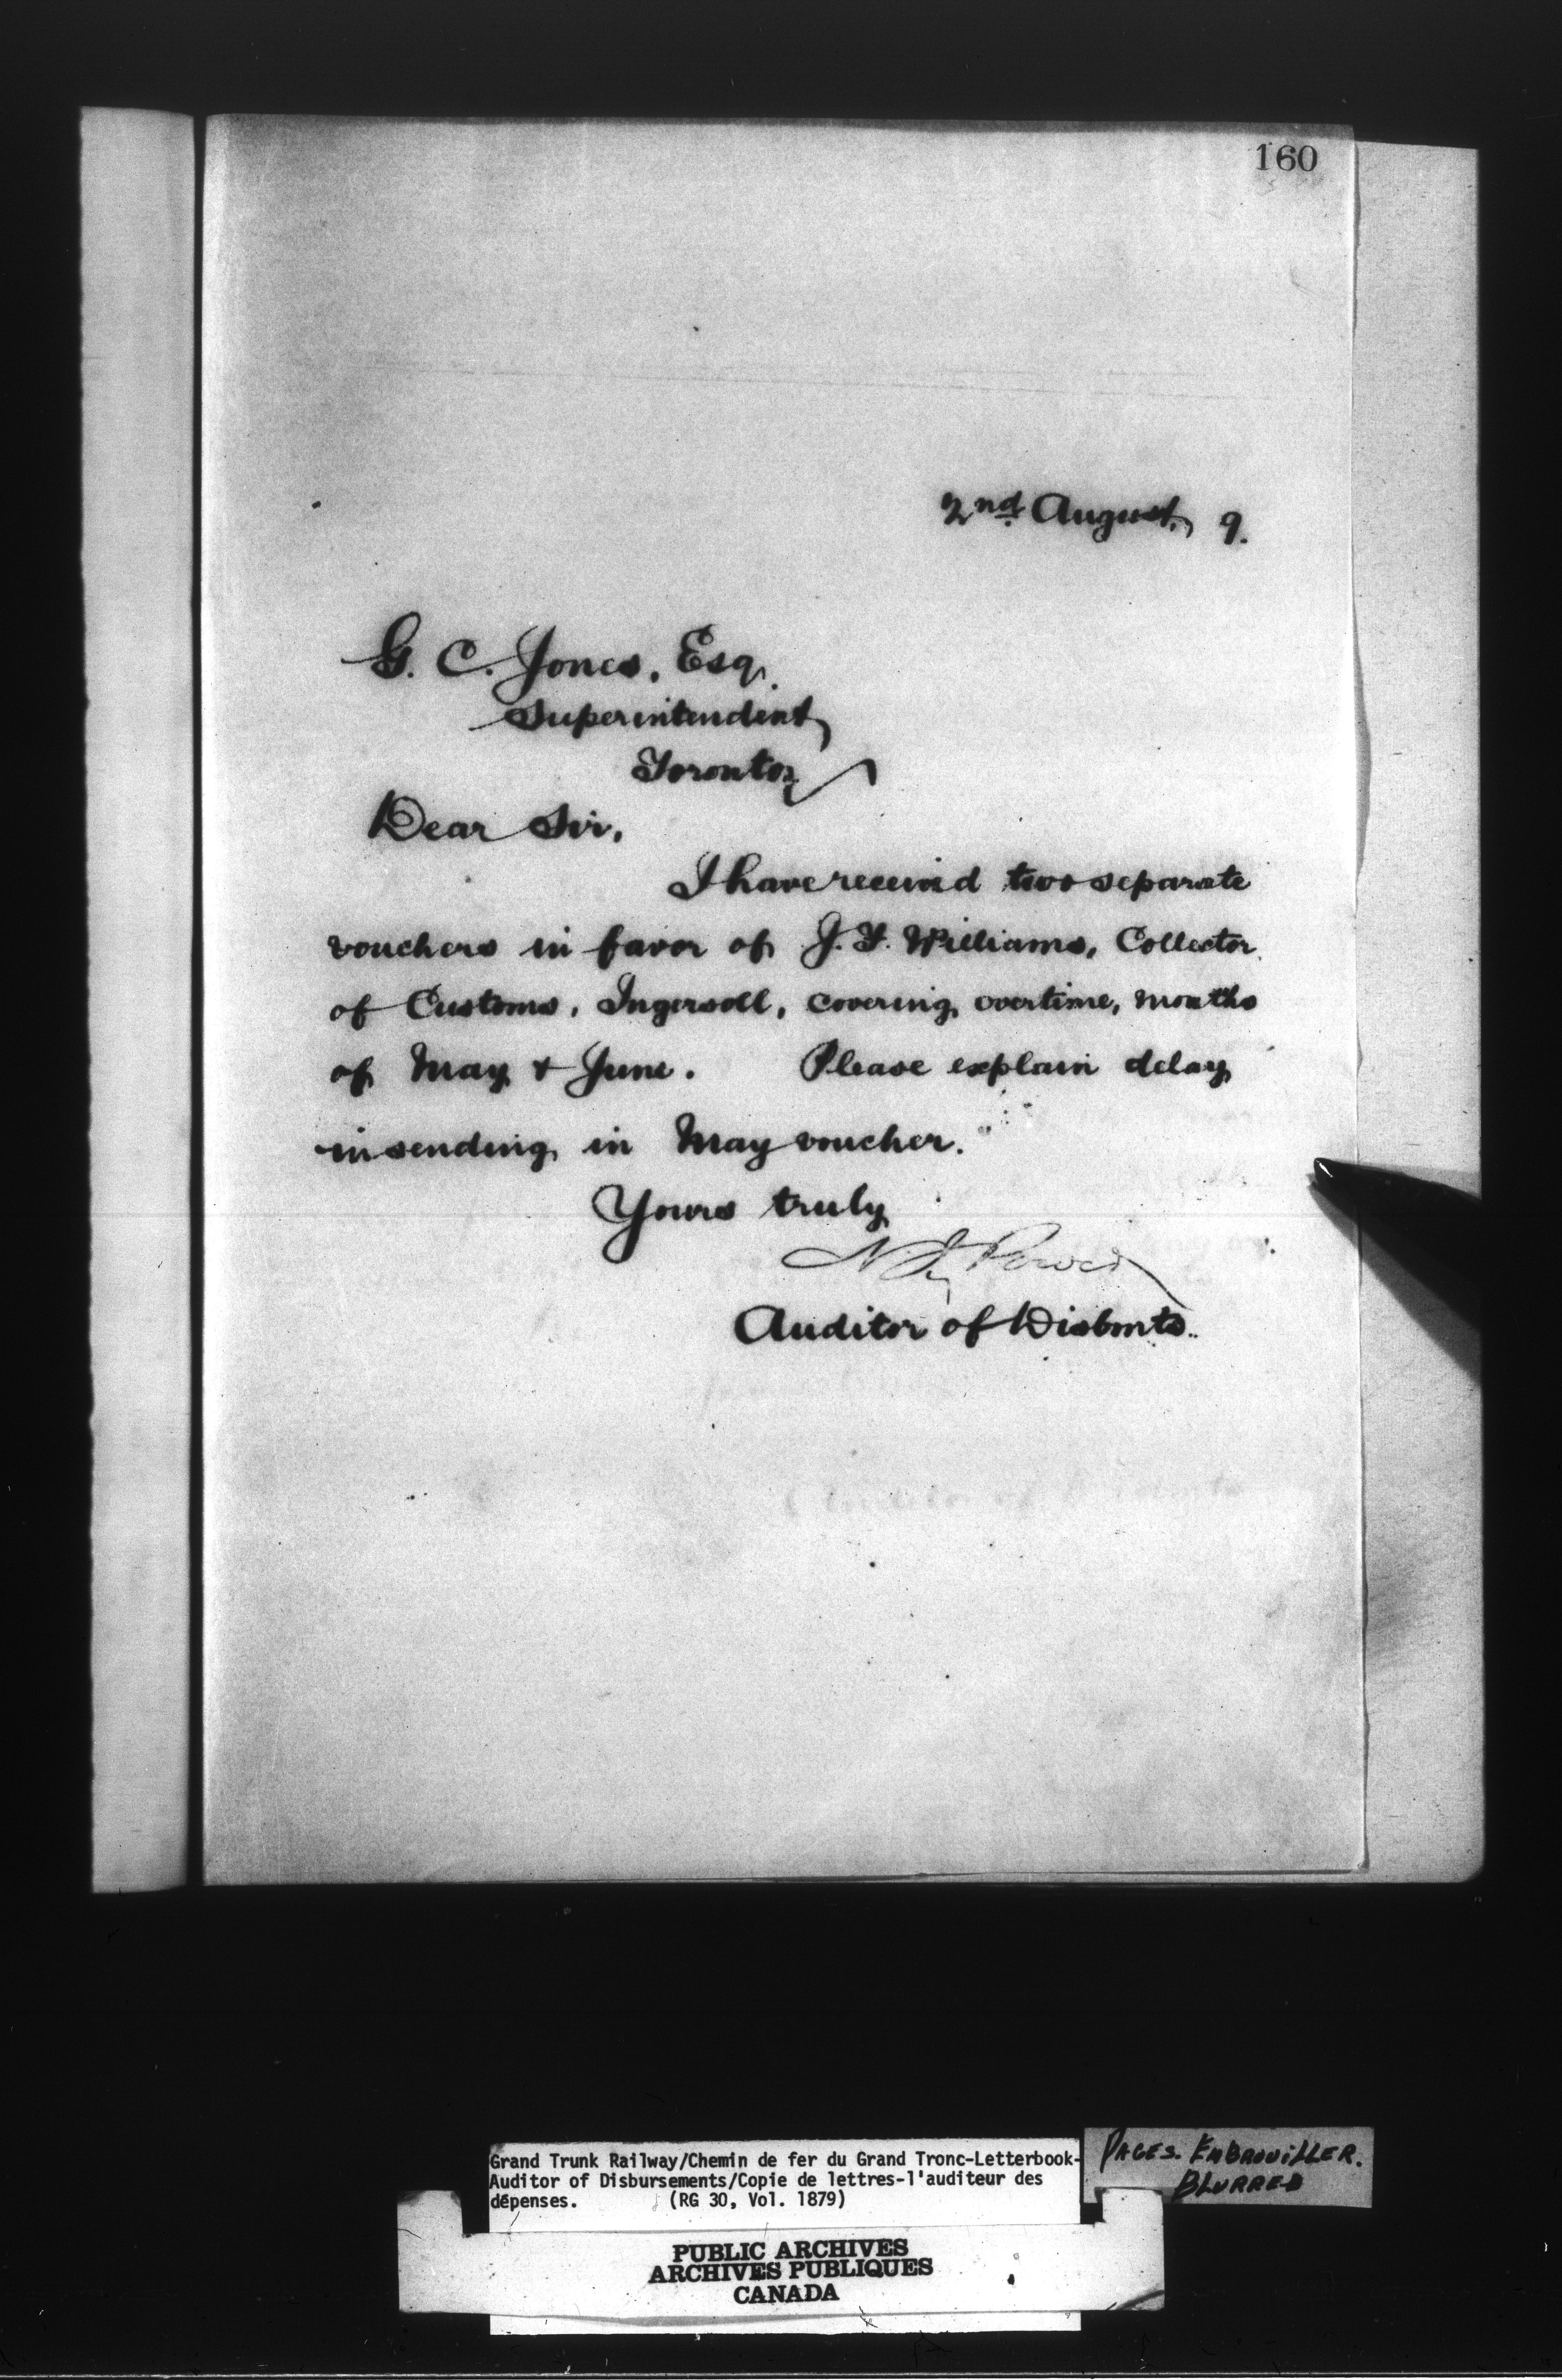 160
2nd August, 9.
G. C. Jones, Esq.
Superintendent,
Toronto,
Dear Sir,
I have received two separate
vouchers in favor of J. F. Williams, Collector
of Customs, Ingersoll, covering overtime, months
of May & June. Please explain delay
in sending in May voucher.
Yours truly
N. J. Power
Auditor of Disbmts.
Grand Trunk Railway/Chemin de fer du Grand Tronc-Letterbook-
Auditor of Disbursements/Copie de lettres-l'auditeur des
dépenses. (RG 30, Vol. 1879)
PAGES. EMBROUILLER.
BLURRED
PUBLIC ARCHIVES
ARCHIVES PUBLIQUES
CANADA